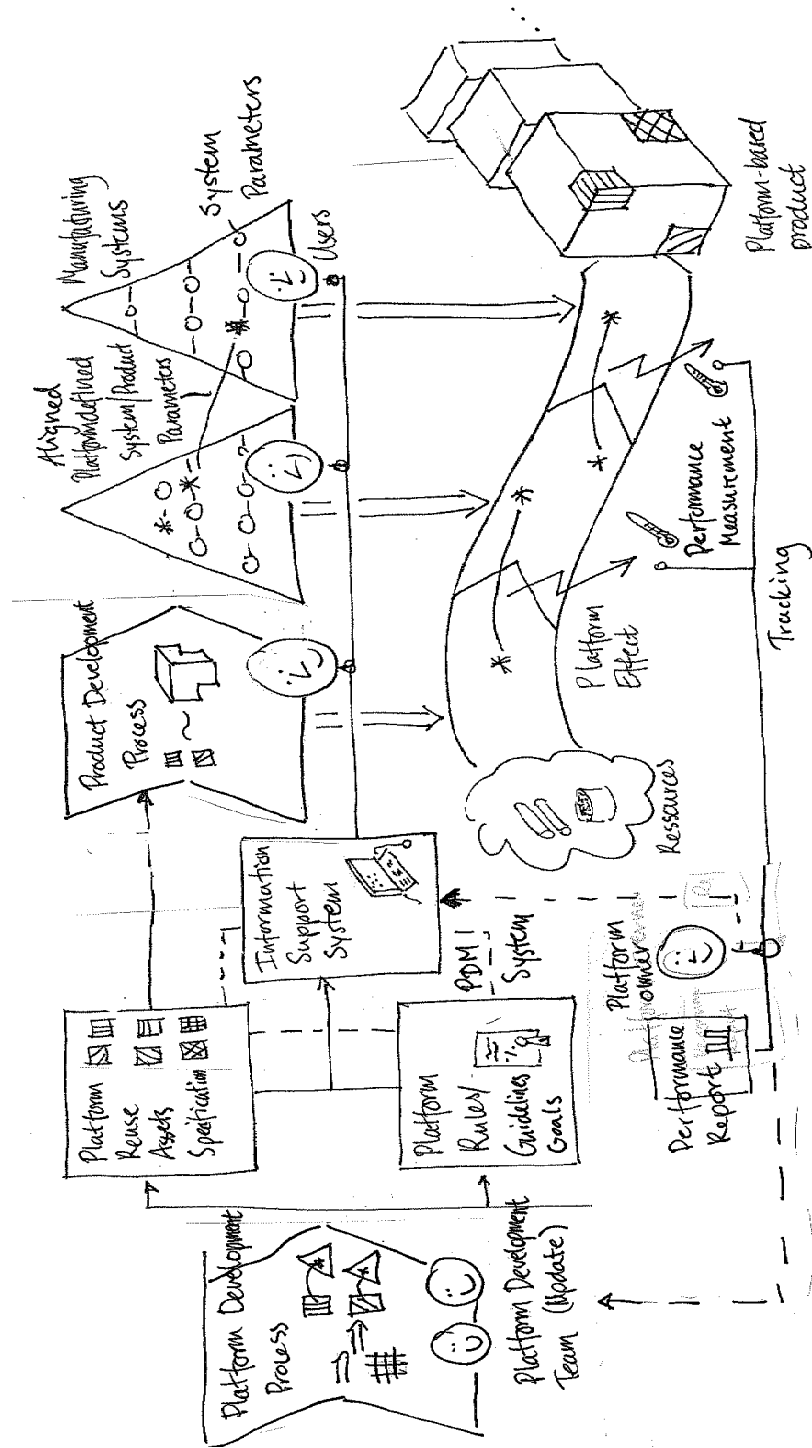 Platform Development
Process
Platform Development
Team (Update)
Platform
Reuse
Assets
Specification
Platform
Rules/
Guidelines
Goals
Information
Support
System
PDM
System
Product Development
Process
Aligned
Platformdefined
System/Product
Parameters
Manufacturing
Systems
System
Parameters
Users
Ressources
Platform
Effect
Performance
Measurement
Platform-based
product
Tracking
Platform
owner
Performance
Report